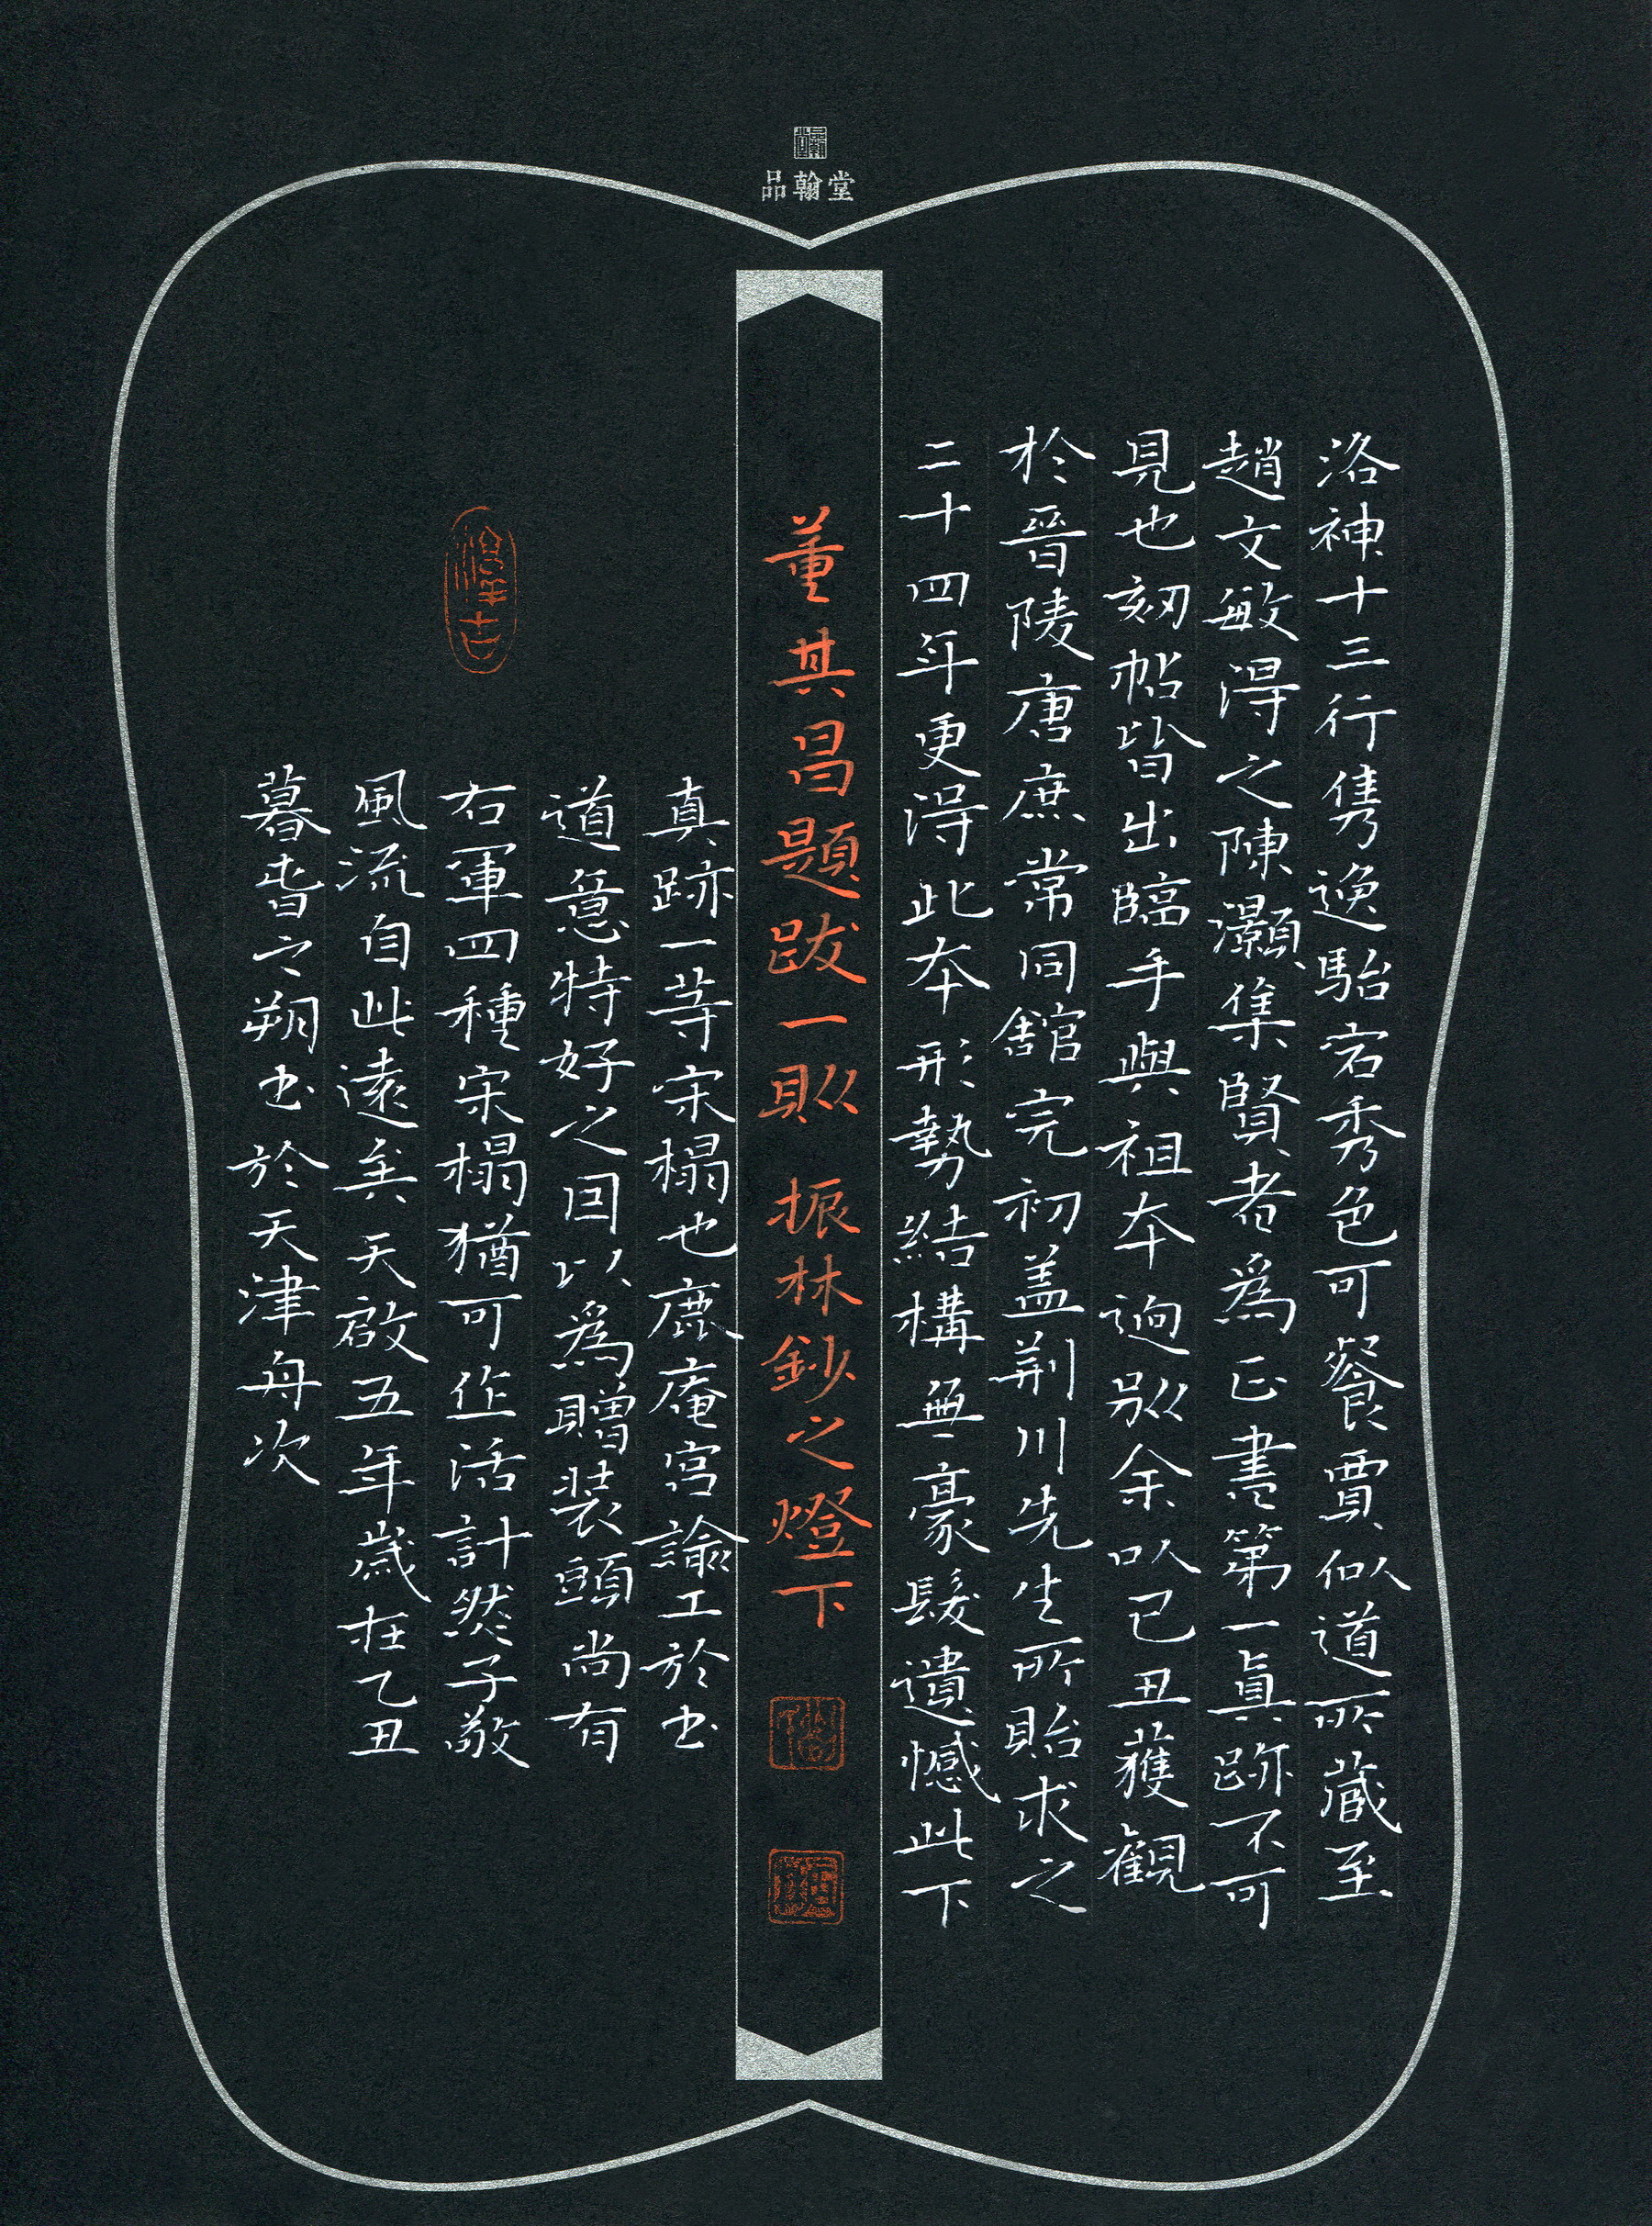 品翰堂
洛神十三行雋逸駘宕秀色可餐賈似道所藏至
趙文敏淂之陳灝集賢者為正書第一真跡不可
見也刻帖皆出臨手與祖本迥別余以己丑獲觀
於晉陵唐庶常同舘完初盖荆川先生所貽求之
二十四年更淂此本形勢結構無豪髮遺憾此下
董其昌題跋一則 振林鈔之燈下
真跡一等宋榻也鹿庵宮諭工於书
道意特好之因以為贈装頭尚有
右軍四種宋榻猶可作活計然子敬
風流自此遠矣天啟五年歲在乙丑
暮春之朔书於天津舟次